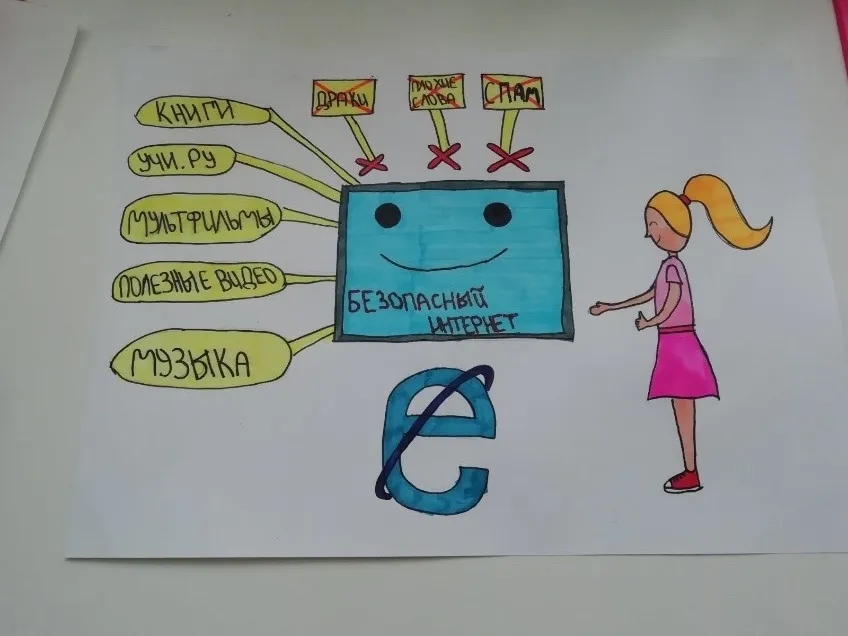 ДРАКИ
ПЛОХИЕ
СЛОВА
СПАМ
КНИГИ
УЧИ.РУ
МУЛЬТФИЛЬМЫ
ПОЛЕЗНЫЕ ВИДЕО
МУЗЫКА
БЕЗОПАСНЫЙ
ИНТЕРНЕТ
e